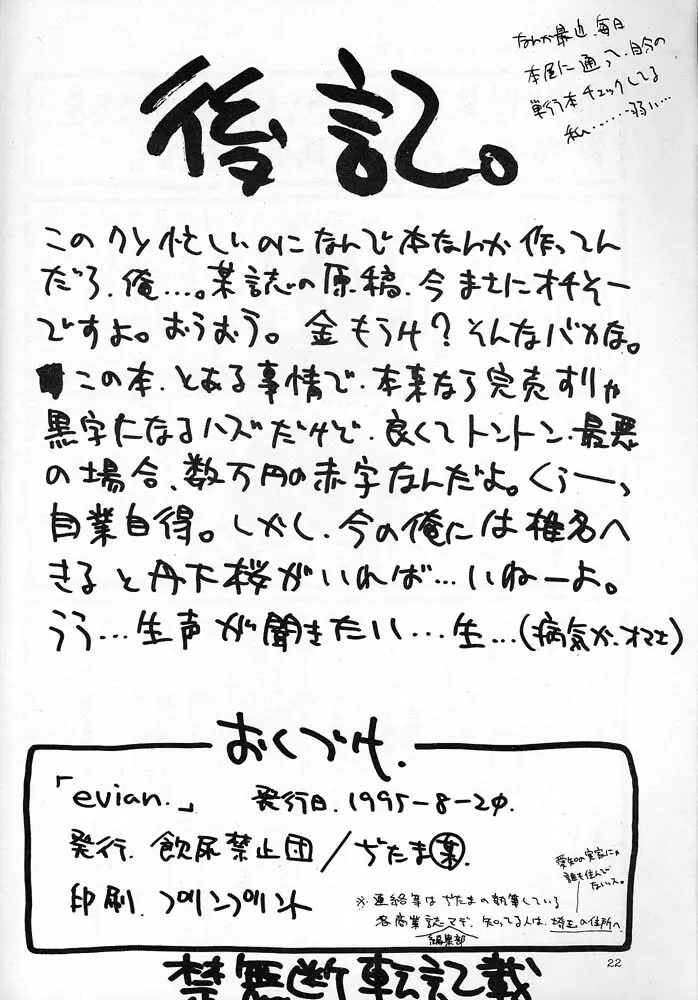 後記。
なんか最近、毎日
本屋に通って、自分の
単行本チェックしてる
私………弱い…
このクソ忙しいのになんで本なんか作ってん
だろ、俺…。某誌の原稿、今まさにオチそー
ですよ。おうおう。金もうけ？そんなバカな。
この本、とある事情で、本来なら完売すりゃ
黒字になるハズだけど、良くてトントン、最悪
の場合、数万円の赤字なんだよ。くぅーっ
自業自得。しかし、今の俺には椎名へ
きると丹下桜がいれば…いねーよ。
うう…生声が聞きたい…生…(病気か、オマエ)
おくづけ.
「evian.」 発行日. 1995-8-20.
発行. 飲尿禁止団/ぢたま㊛
印刷. プリンプリント
※連絡等はぢたまの執筆している
各商業誌マデ、知ってる人は、埼玉の住所へ
編集部
愛知の実家にゃ
誰も住んで
ないッス。
22
禁無断転記載